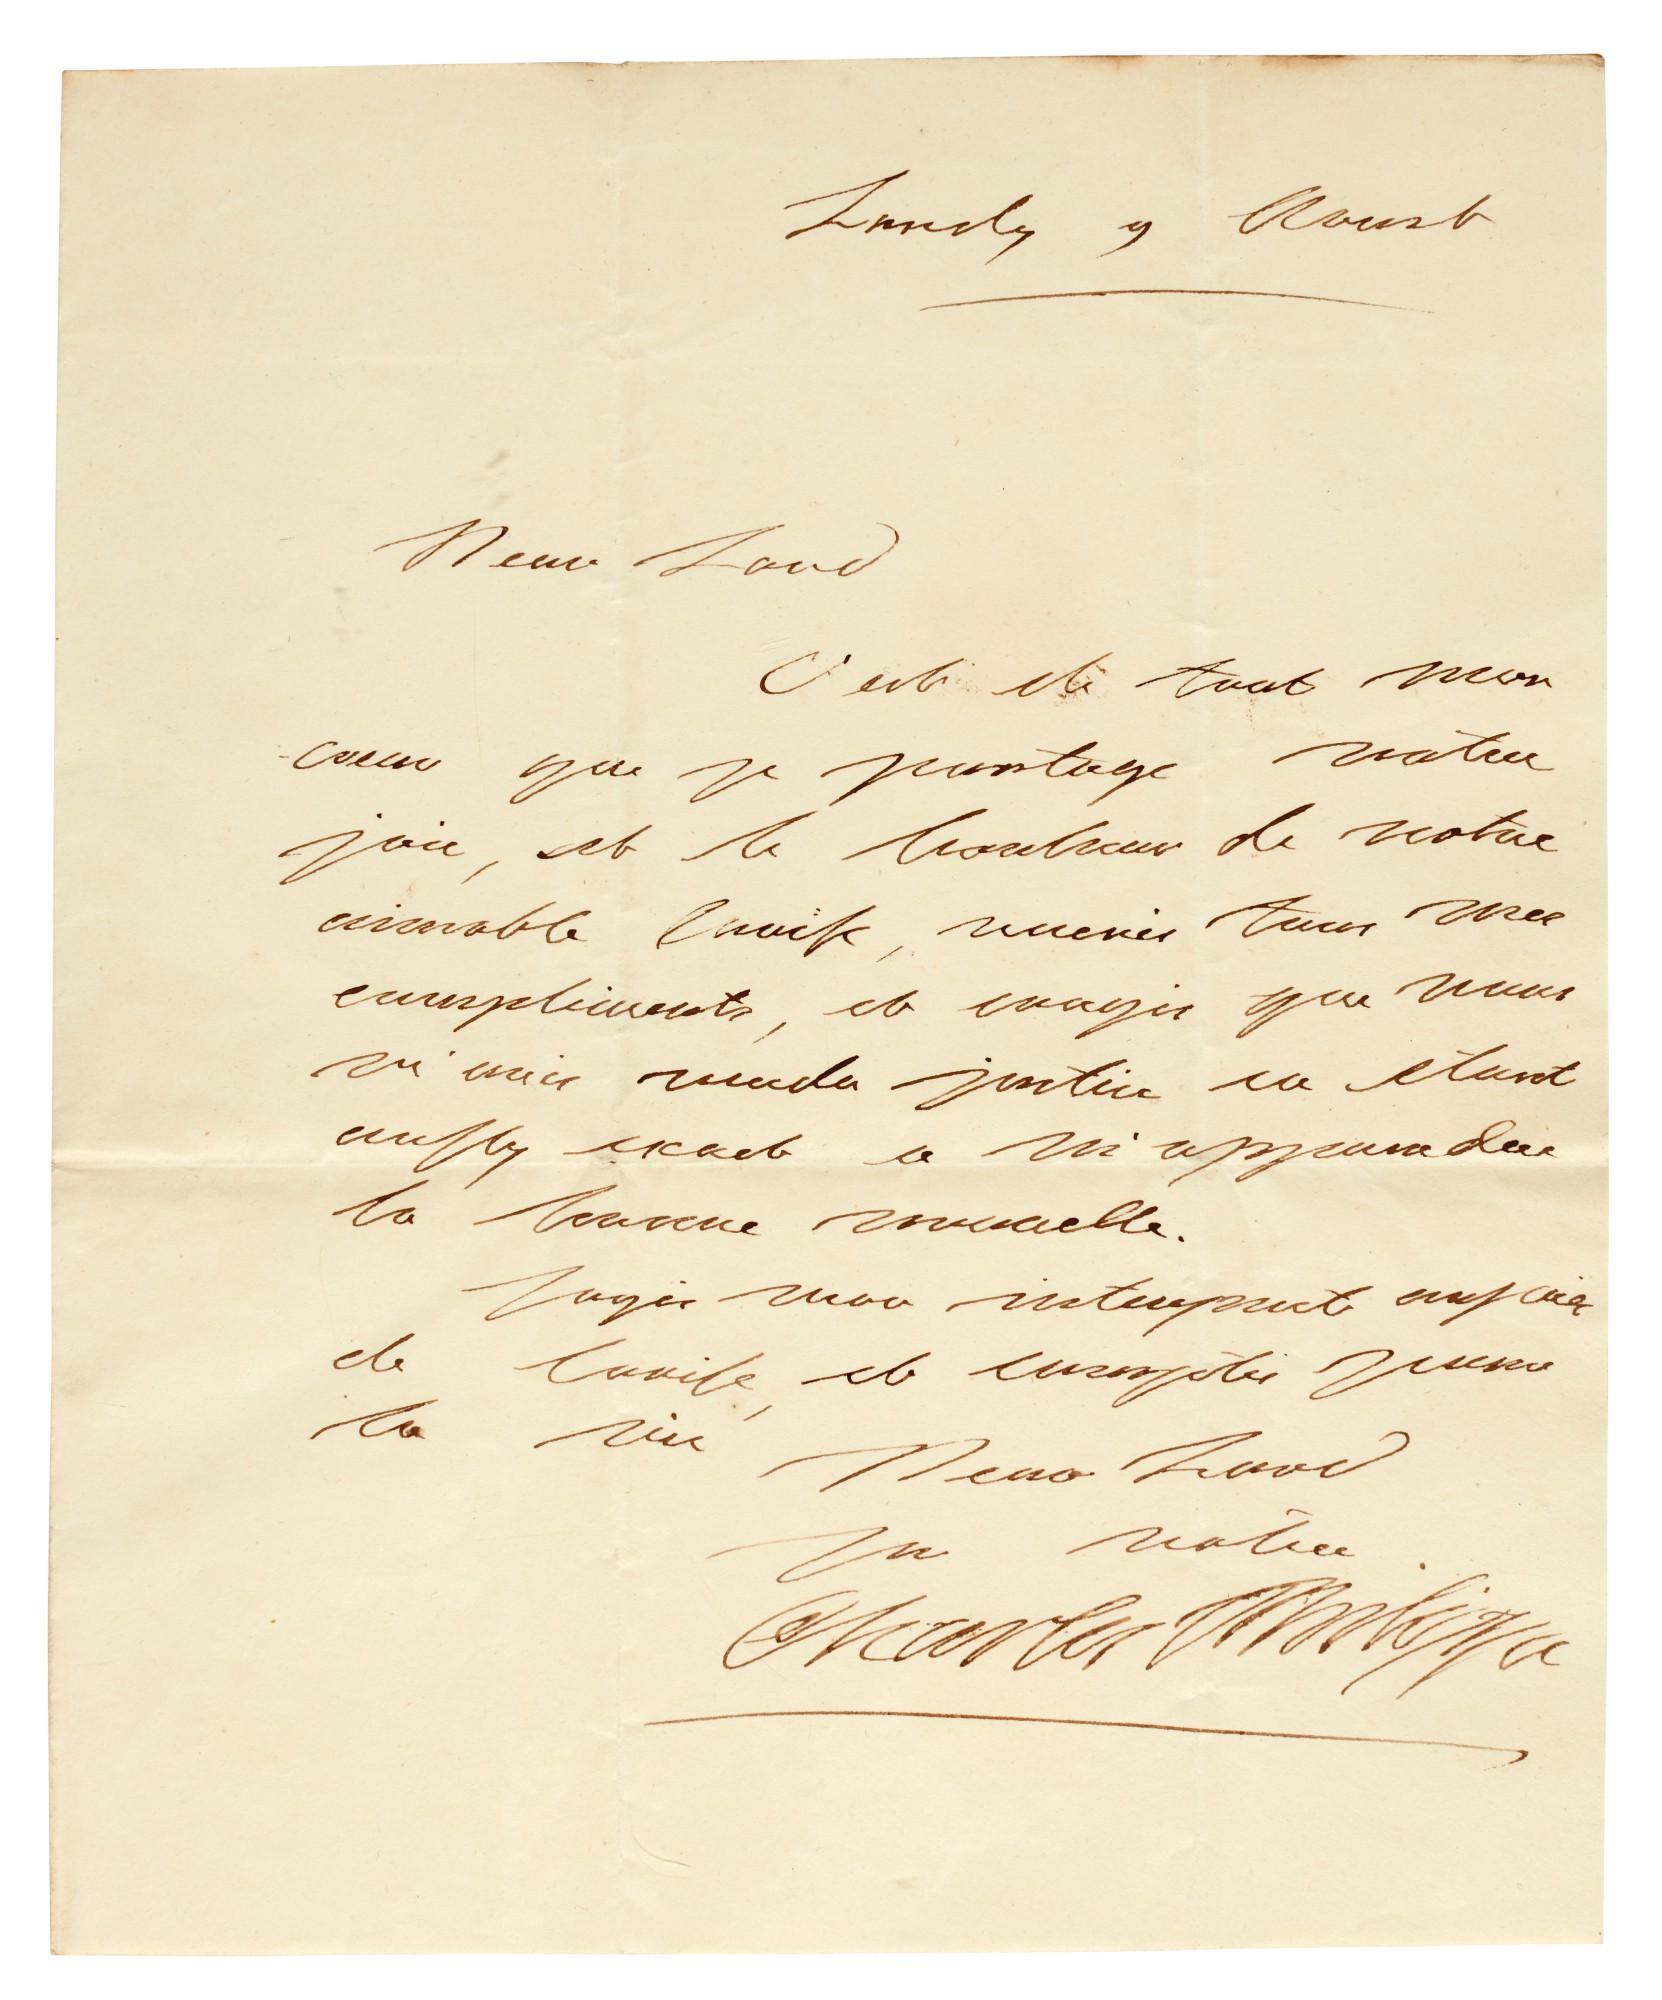 Lundy 9 Aoust
Dear Lord
C'est de tout mon
coeur que je partage votre
joie, et le bonheur de votre
aimable Louise, recevés tous mes
compliments, et croyés que vous
m'avés rendu justice en étant
aussy exact a m'apprendre
la bonne nouvelle.
Soyés mon interprete auprès
de Louise, et comptés pour
la vie
Dear Lord
sur votre
Charles Philippe